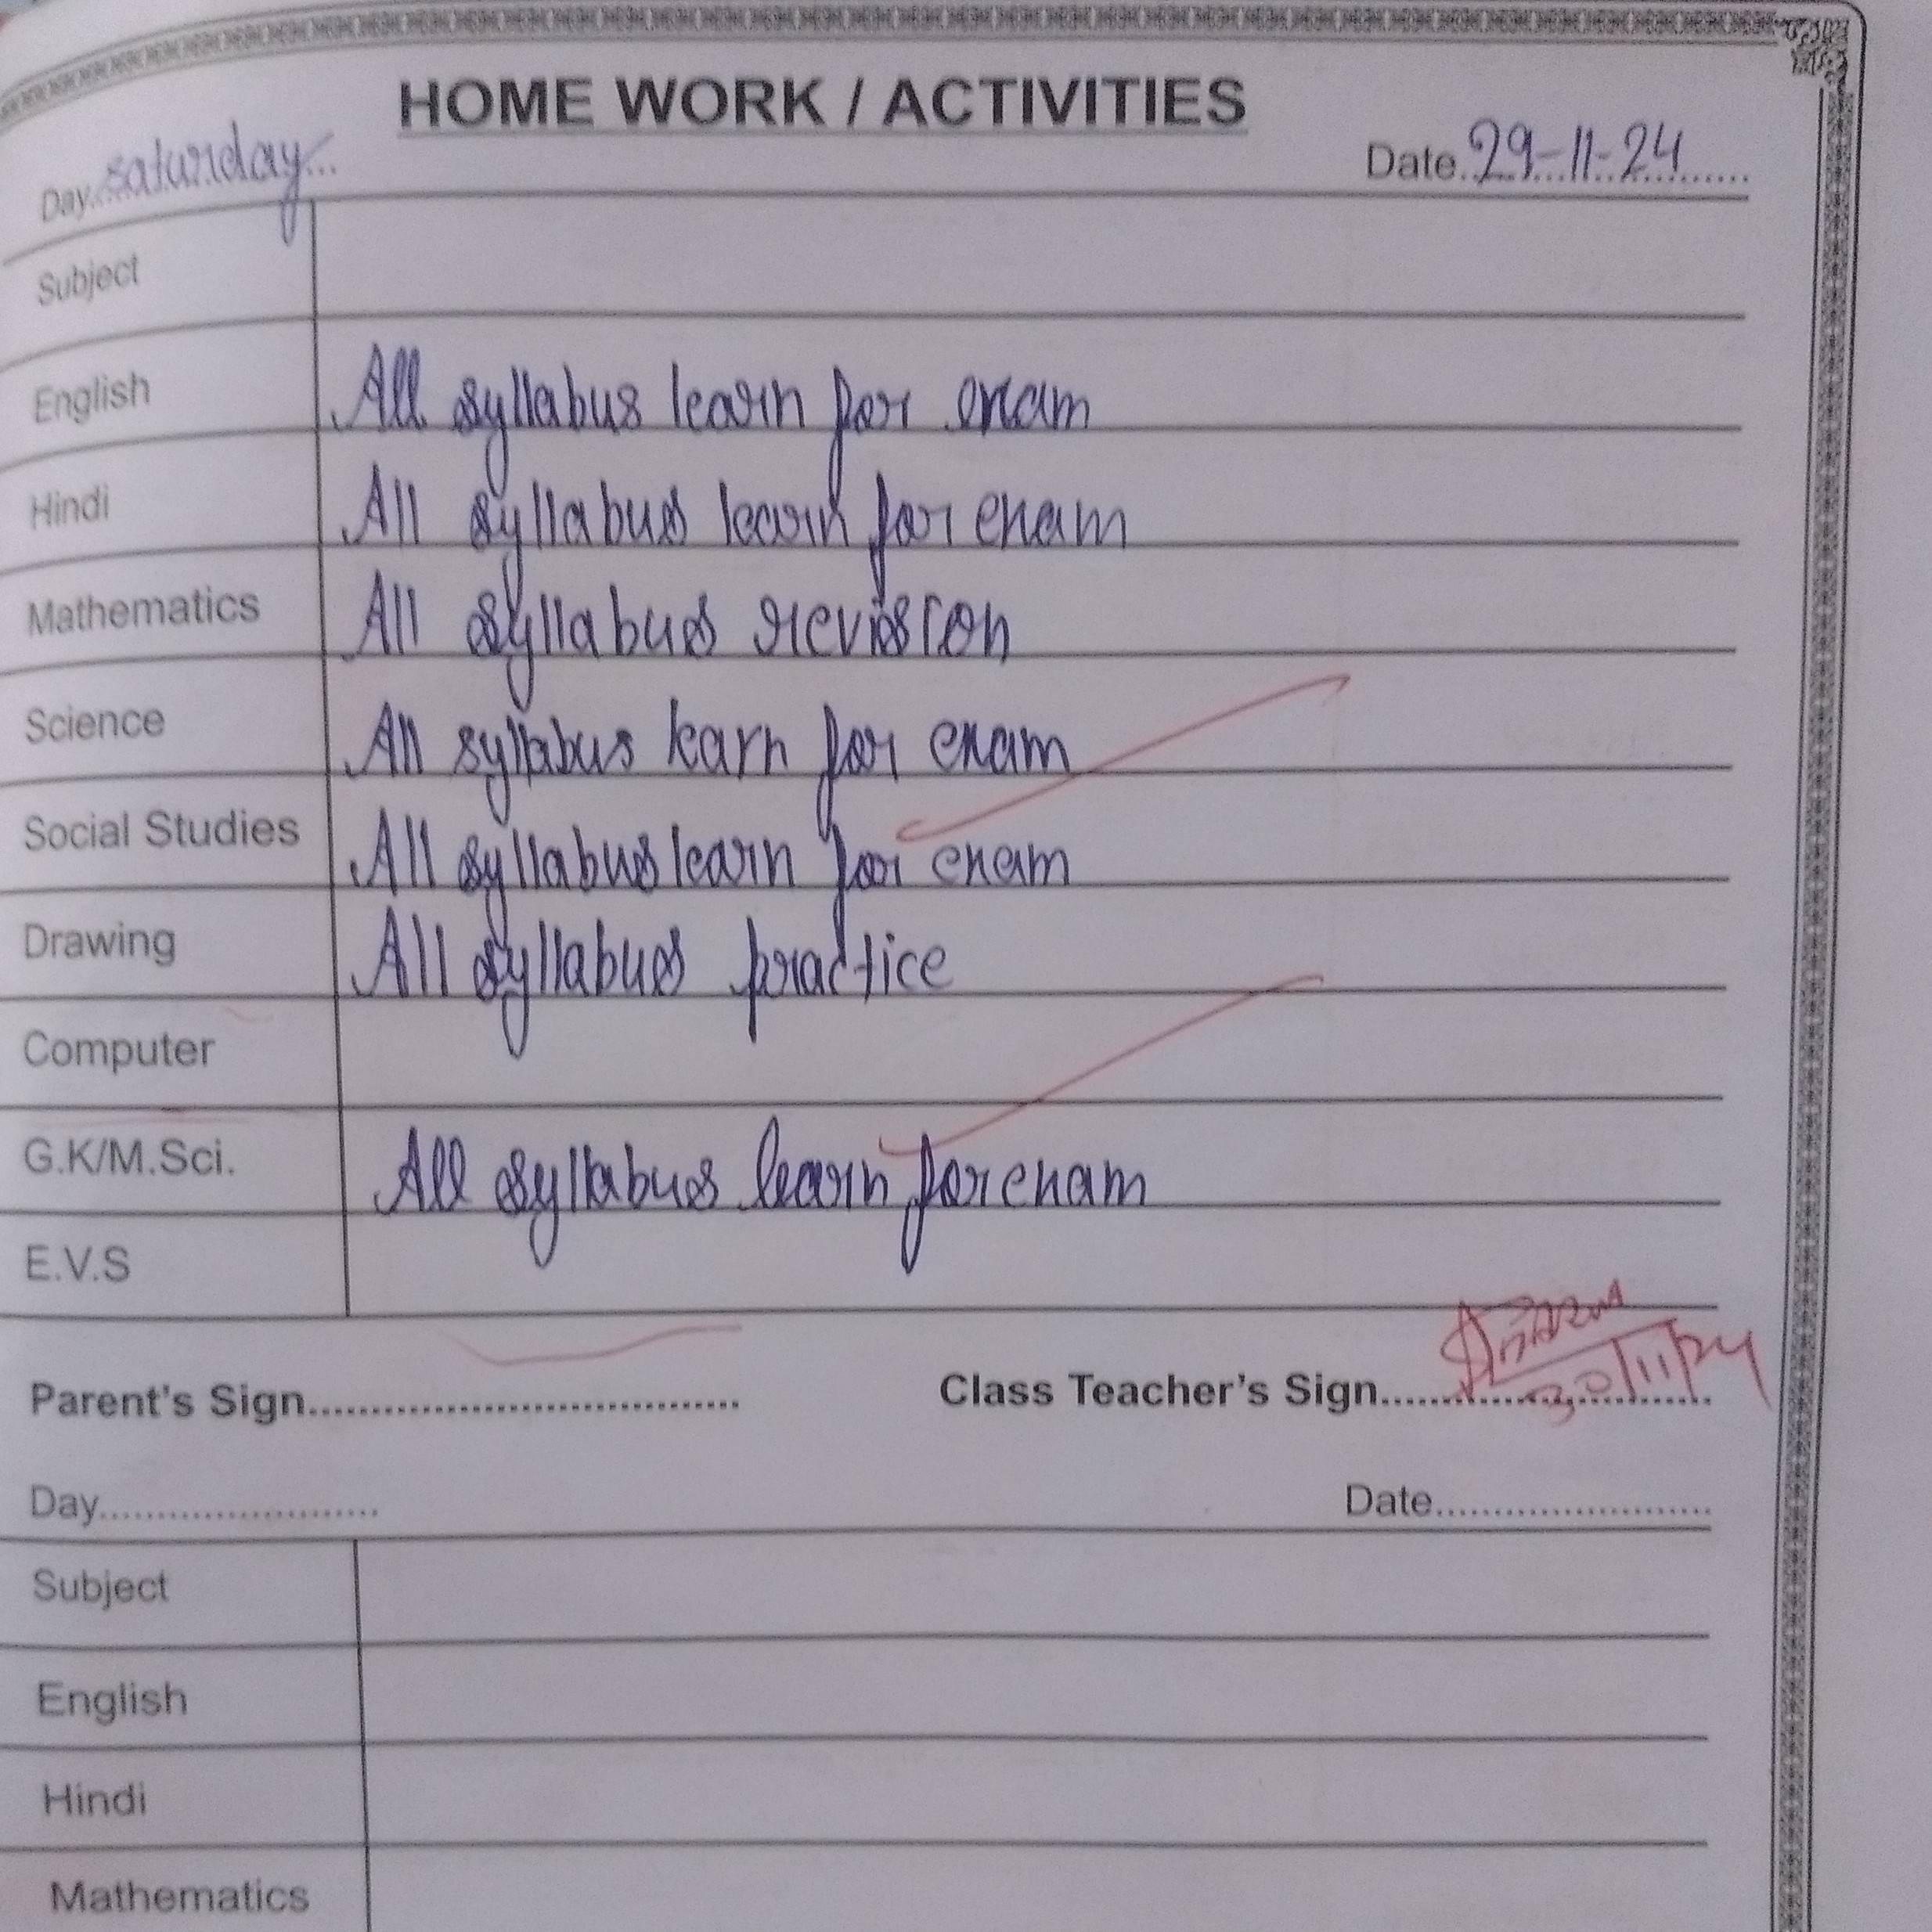 HOME WORK / ACTIVITIES
Day..saturday... Date.29-11-24......
Subject
English All syllabus learn for exam
Hindi All syllabus learn for exam
Mathematics All syllabus revision
Science All syllabus learn for exam
Social Studies All syllabus learn for exam
Drawing All syllabus practice
Computer
G.K/M.Sci. All syllabus learn for exam
E.V.S
Parent's Sign.................................. Class Teacher's Sign..........................
30/11/24
Day........................ Date........................
Subject
English
Hindi
Mathematics